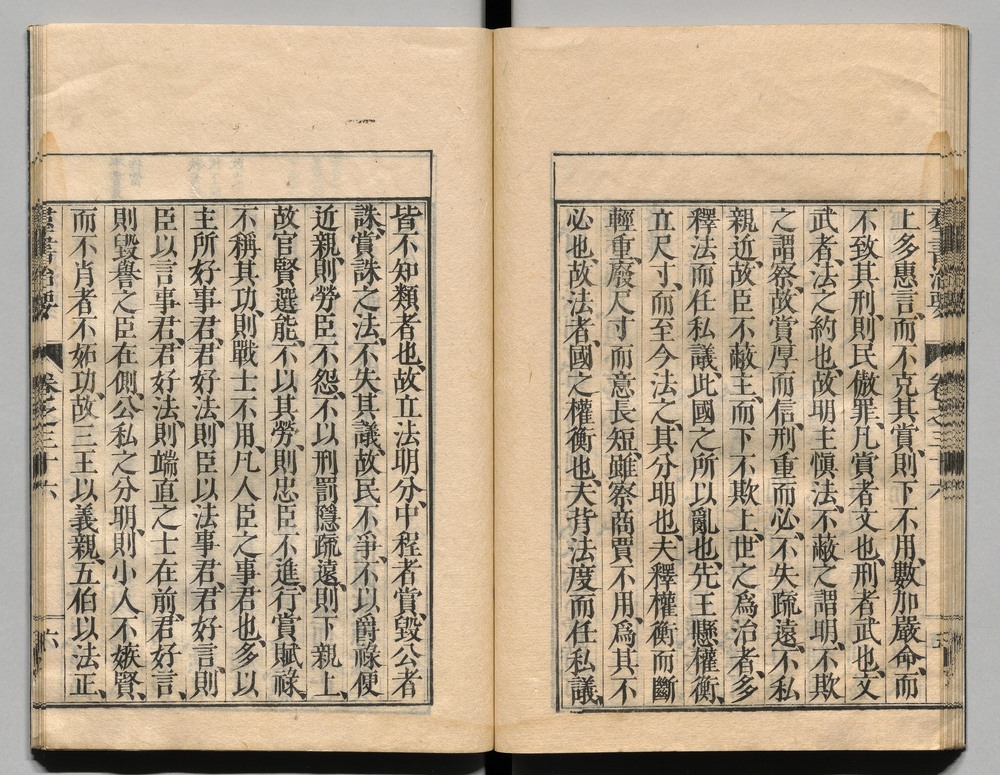 上多惠言、而不克其賞、則下不用、數加嚴命、而
不致其刑、則民傲罪、凡賞者文也、刑者武也、文
武者、法之約也、故明主愼法、不蔽之謂明、不欺
之謂察、故賞厚而信、刑重而必、不失疏遠、不私
親近、故臣不蔽主、而下不欺上、世之爲治者、多
釋法而任私議、此國之所以亂也、先王懸權衡、
立尺寸、而至今法之、其分明也、夫釋權衡而斷
輕重、廢尺寸而意長短、雖察商賈不用、爲其不
必也、故法者、國之權衡也、夫背法度而任私議、
皆不知類者也、故立法明分、中程者賞、毀公者
誅、賞誅之法、不失其議、故民不爭、不以爵祿便
近親、則勞臣不怨、不以刑罰隱疏遠、則下親上、
故官賢選能、不以其勞、則忠臣不進、行賞賦祿、
不稱其功、則戰士不用、凡人臣之事君也、多以
主所好事君、君好法、則臣以法事君、君好言、則
臣以言事君、君好法、則端直之士在前、君好言、
則毀譽之臣在側、公私之分明、則小人不嫉賢、
而不肖者不妬功、故三王以義親、五伯以法正、
群書治要 卷之三十六 六